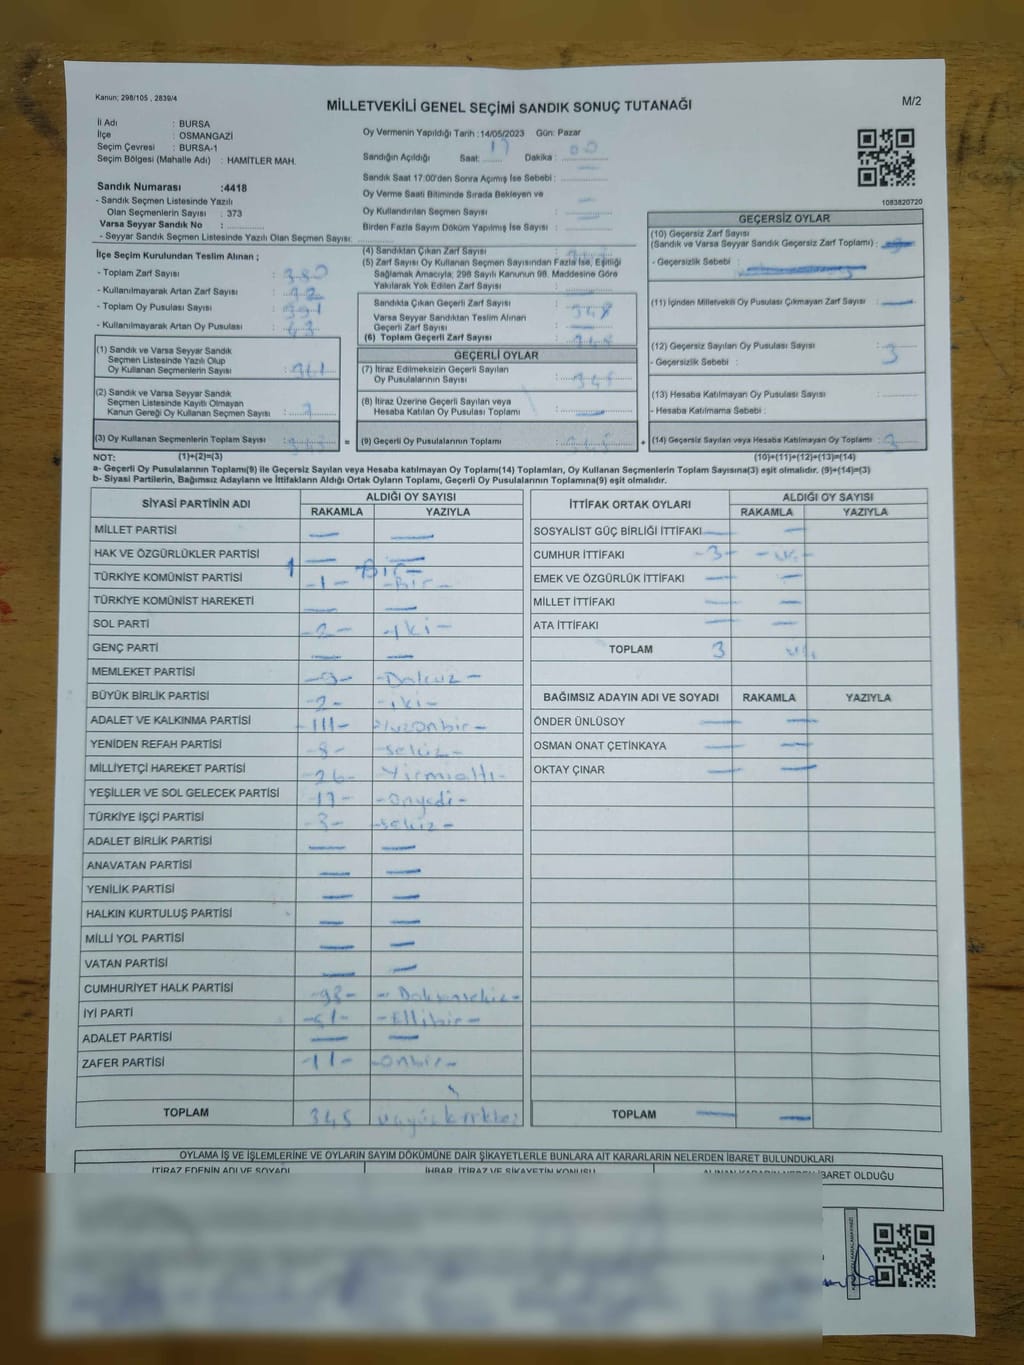 Kanun; 298/105 , 2839/4
MİLLETVEKİLİ GENEL SEÇİMİ SANDIK SONUÇ TUTANAĞI
M/2
İl Adı : BURSA
İlçe : OSMANGAZİ
Seçim Çevresi : BURSA-1
Seçim Bölgesi (Mahalle Adı) : HAMİTLER MAH.
Oy Vermenin Yapıldığı Tarih :14/05/2023 Gün: Pazar
Sandığın Açıldığı Saat: 17 Dakika : 00
Sandık Saat 17:00'den Sonra Açımış İse Sebebi :
Oy Verme Saati Bitiminde Sırada Bekleyen ve
Oy Kullandırılan Seçmen Sayısı : —
Birden Fazla Sayım Döküm Yapılmış İse Sayısı :
1083820720
Sandık Numarası :4418
- Sandık Seçmen Listesinde Yazılı
Olan Seçmenlerin Sayısı : 373
Varsa Seyyar Sandık No :
- Seyyar Sandık Seçmen Listesinde Yazılı Olan Seçmen Sayısı:
İlçe Seçim Kurulundan Teslim Alınan ;
- Toplam Zarf Sayısı : 380
- Kullanılmayarak Artan Zarf Sayısı :
- Toplam Oy Pusulası Sayısı : 391
- Kullanılmayarak Artan Oy Pusulası : 43
(1) Sandık ve Varsa Seyyar Sandık
Seçmen Listesinde Yazılı Olup
Oy Kullanan Seçmenlerin Sayısı :
(2) Sandık ve Varsa Seyyar Sandık
Seçmen Listesinde Kayıtlı Olmayan
Kanun Gereği Oy Kullanan Seçmen Sayısı :
(3) Oy Kullanan Seçmenlerin Toplam Sayısı :
(1)+(2)=(3)
(4) Sandıktan Çıkan Zarf Sayısı :
(5) Zarf Sayısı Oy Kullanan Seçmen Sayısından Fazla İse, Eşitliği
Sağlamak Amacıyla; 298 Sayılı Kanunun 98. Maddesine Göre
Yakılarak Yok Edilen Zarf Sayısı :
Sandıkta Çıkan Geçerli Zarf Sayısı : 348
Varsa Seyyar Sandıktan Teslim Alınan
Geçerli Zarf Sayısı : —
(6) Toplam Geçerli Zarf Sayısı : 348
GEÇERLİ OYLAR
(7) İtiraz Edilmeksizin Geçerli Sayılan
Oy Pusulalarının Sayısı : 345
(8) İtiraz Üzerine Geçerli Sayılan veya
Hesaba Katılan Oy Pusulası Toplamı : —
= (9) Geçerli Oy Pusulalarının Toplamı : 345
GEÇERSİZ OYLAR
(10) Geçersiz Zarf Sayısı
(Sandık ve Varsa Seyyar Sandık Geçersiz Zarf Toplamı) :
- Geçersizlik Sebebi :
(11) İçinden Milletvekili Oy Pusulası Çıkmayan Zarf Sayısı : —
(12) Geçersiz Sayılan Oy Pusulası Sayısı : 3
- Geçersizlik Sebebi :
(13) Hesaba Katılmayan Oy Pusulası Sayısı :
- Hesaba Katılmama Sebebi :
+ (14) Geçersiz Sayılan veya Hesaba Katılmayan Oy Toplamı : 3
(10)+(11)+(12)+(13)=(14)
NOT:
a- Geçerli Oy Pusulalarının Toplamı(9) ile Geçersiz Sayılan veya Hesaba katılmayan Oy Toplamı(14) Toplamları, Oy Kullanan Seçmenlerin Toplam Sayısına(3) eşit olmalıdır. (9)+(14)=(3)
b- Siyasi Partilerin, Bağımsız Adayların ve İttifakların Aldığı Ortak Oyların Toplamı, Geçerli Oy Pusulalarının Toplamına(9) eşit olmalıdır.
SİYASİ PARTİNİN ADI ALDIĞI OY SAYISI
RAKAMLA YAZIYLA
MİLLET PARTİSİ — —
HAK VE ÖZGÜRLÜKLER PARTİSİ — —
1 Bir
TÜRKİYE KOMÜNİST PARTİSİ -1- -Bir-
TÜRKİYE KOMÜNİST HAREKETİ — —
SOL PARTİ -2- -iki-
GENÇ PARTİ — —
MEMLEKET PARTİSİ -9- -Dokuz-
BÜYÜK BİRLİK PARTİSİ -2- -iki-
ADALET VE KALKINMA PARTİSİ -111- -yüzonbir-
YENİDEN REFAH PARTİSİ -8- -sekiz-
MİLLİYETÇİ HAREKET PARTİSİ -26- -Yirmialtı-
YEŞİLLER VE SOL GELECEK PARTİSİ -17- -onyedi-
TÜRKİYE İŞÇİ PARTİSİ -sekiz-
ADALET BİRLİK PARTİSİ — —
ANAVATAN PARTİSİ — —
YENİLİK PARTİSİ — —
HALKIN KURTULUŞ PARTİSİ — —
MİLLİ YOL PARTİSİ — —
VATAN PARTİSİ — —
CUMHURİYET HALK PARTİSİ -98-
İYİ PARTİ -51- -Ellibir-
ADALET PARTİSİ — —
ZAFER PARTİSİ -11- -onbir-
TOPLAM 345
İTTİFAK ORTAK OYLARI ALDIĞI OY SAYISI
RAKAMLA YAZIYLA
SOSYALİST GÜÇ BİRLİĞİ İTTİFAKI — —
CUMHUR İTTİFAKI -3- -üç-
EMEK VE ÖZGÜRLÜK İTTİFAKI — —
MİLLET İTTİFAKI — —
ATA İTTİFAKI — —
TOPLAM 3 üç
BAĞIMSIZ ADAYIN ADI VE SOYADI RAKAMLA YAZIYLA
ÖNDER ÜNLÜSOY — —
OSMAN ONAT ÇETİNKAYA — —
OKTAY ÇINAR — —
TOPLAM — —
OYLAMA İŞ VE İŞLEMLERİNE VE OYLARIN SAYIM DÖKÜMÜNE DAİR ŞİKAYETLERLE BUNLARA AİT KARARLARIN NELERDEN İBARET BULUNDUKLARI
İTİRAZ EDENİN ADI VE SOYADI İHBAR, İTİRAZ VE ŞİKAYETİN KONUSU ALINAN KARARIN NEDEN İBARET OLDUĞU